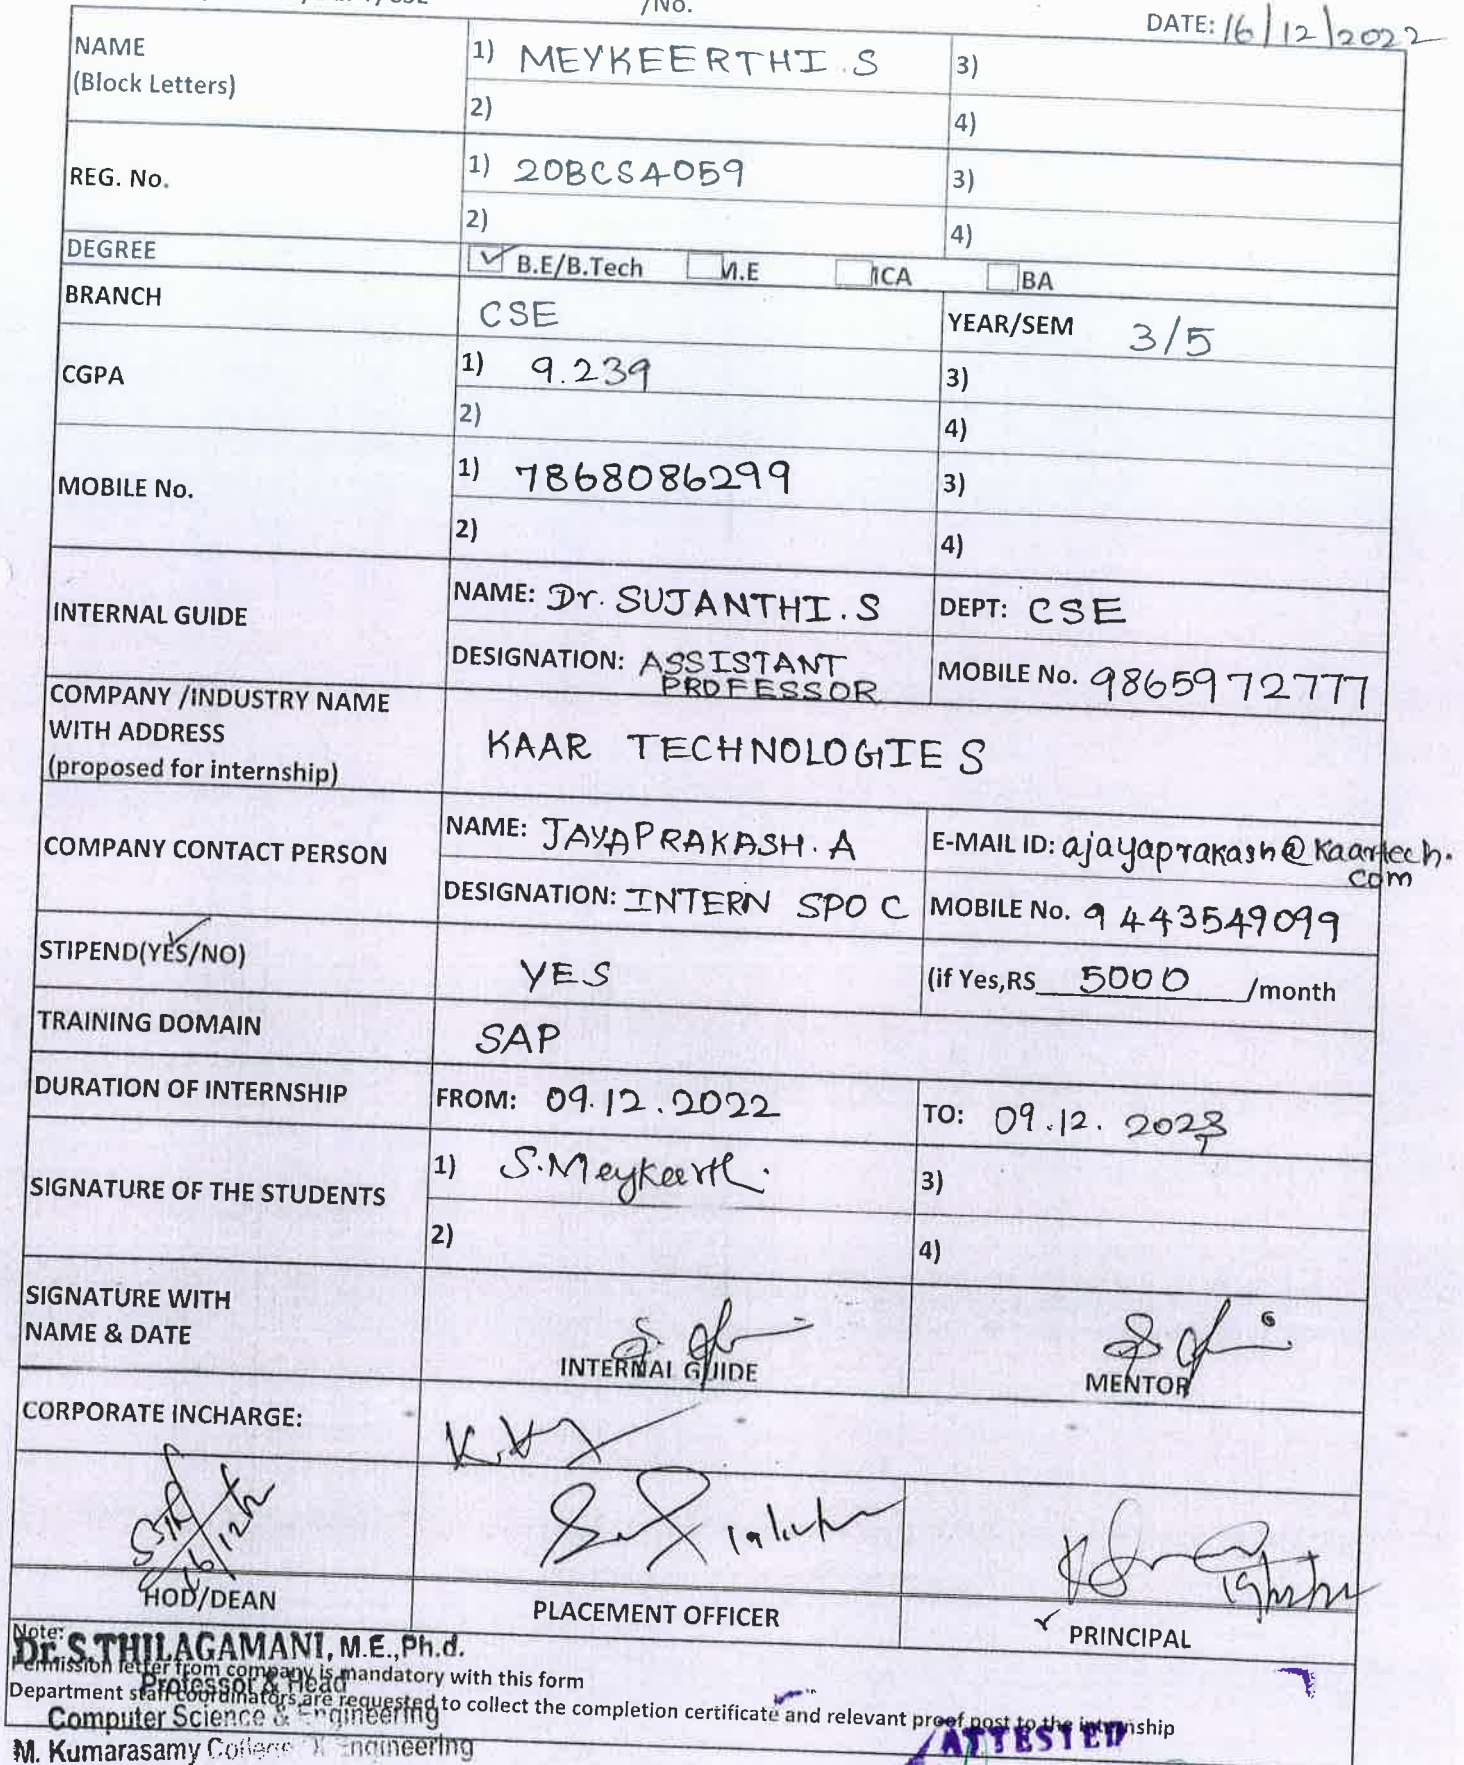 /No.
DATE: 16/12/2022
NAME
(Block Letters)
1) MEYKEERTHI.S
3)
2)
4)
REG. No.
1) 20BCS4059
3)
2)
4)
DEGREE
B.E/B.Tech M.E ICA BA
BRANCH
CSE
YEAR/SEM 3/5
CGPA
1) 9.239
3)
2)
4)
MOBILE No.
1) 7868086299
3)
2)
4)
INTERNAL GUIDE
NAME: Dr. SUJANTHI.S
DEPT: CSE
DESIGNATION: ASSISTANT
PROFESSOR
MOBILE No. 9865972777
COMPANY /INDUSTRY NAME
WITH ADDRESS
(proposed for internship)
KAAR TECHNOLOGIES
COMPANY CONTACT PERSON
NAME: JAYAPRAKASH.A
E-MAIL ID: ajayaprakash@kaartech.
com
DESIGNATION: INTERN SPOC
MOBILE No. 9443549099
STIPEND(YES/NO)
YES
(if Yes,RS 5000 /month
TRAINING DOMAIN
SAP
DURATION OF INTERNSHIP
FROM: 09.12.2022
TO: 09.12.2023
SIGNATURE OF THE STUDENTS
1) S.Meykeerth.
3)
2)
4)
SIGNATURE WITH
NAME & DATE
INTERNAL GUIDE
MENTOR
CORPORATE INCHARGE:
HOD/DEAN
PLACEMENT OFFICER
PRINCIPAL
Note:
Dr.S.THILAGAMANI, M.E.,Ph.d.
Permission letter from company is mandatory with this form
Professor & Head
Department staff coordinators are requested to collect the completion certificate and relevant proof post to the internship
Computer Science & Engineering
M. Kumarasamy College of Engineering
ATTESTED